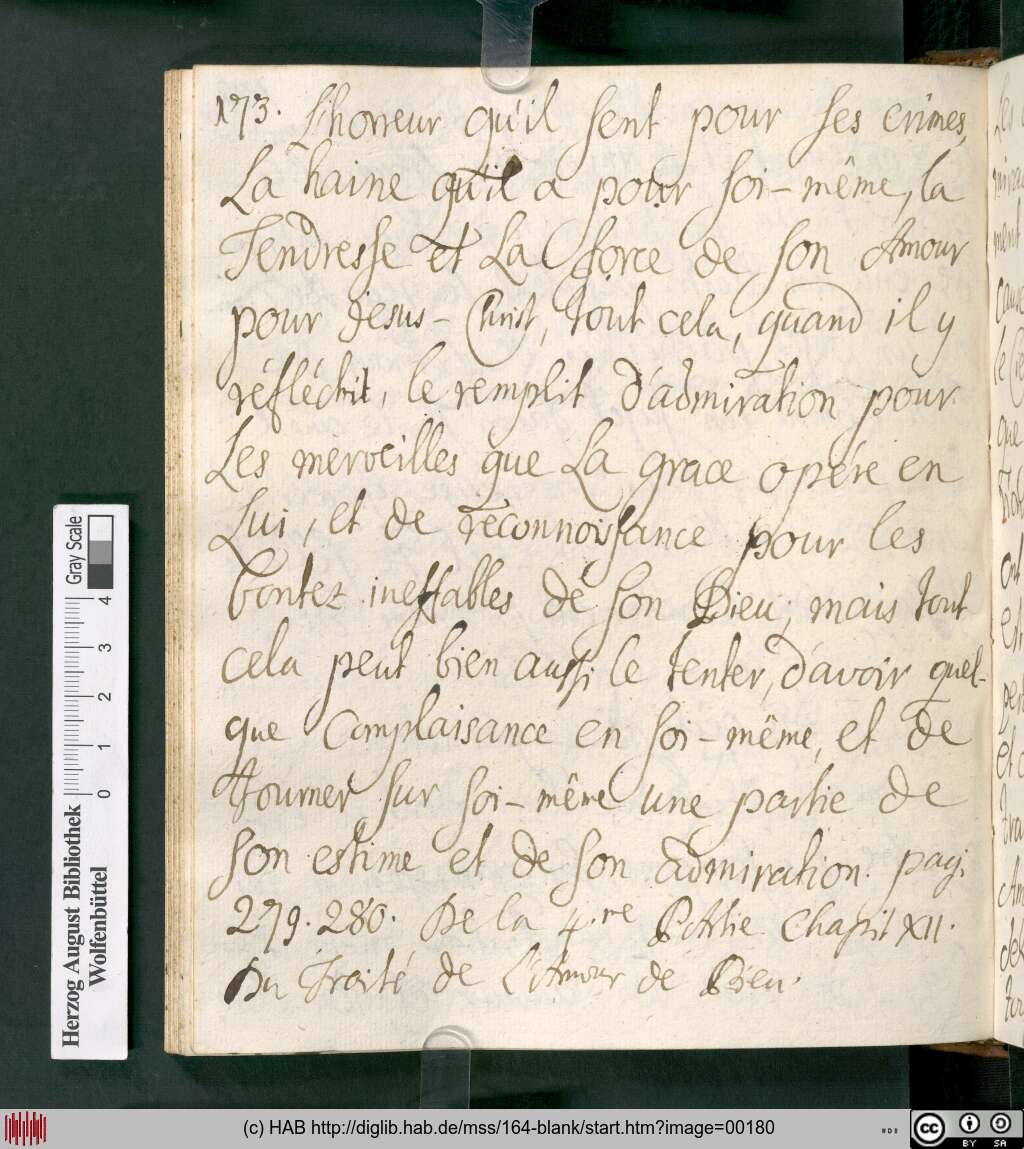 173. L'horreur qu'il sent pour ses crimes,
La haine qu'il a pour soi-même, la
Tendresse et La force de son Amour
pour Jesus-Christ, tout cela, quand il y
réfléchit, le remplit d'admiration pour
Les merveilles que La grace opére en
Lui, et de reconnoissance pour les
bontez ineffables de son Dieu; mais tout
cela peut bien aussi le tenter, d'avoir quel-
que Complaisance en soi-même, et de
tourner sur soi-même une partie de
son estime et de son admiration. pag.
279. 280. De la 4.re Partie Chapit XII.
Du Traité de L'Amour de Dieu.
Gray Scale
0 1 2 3 4
Herzog August Bibliothek
Wolfenbüttel
HAB
(c) HAB http://diglib.hab.de/mss/164-blank/start.htm?image=00180
cc BY SA